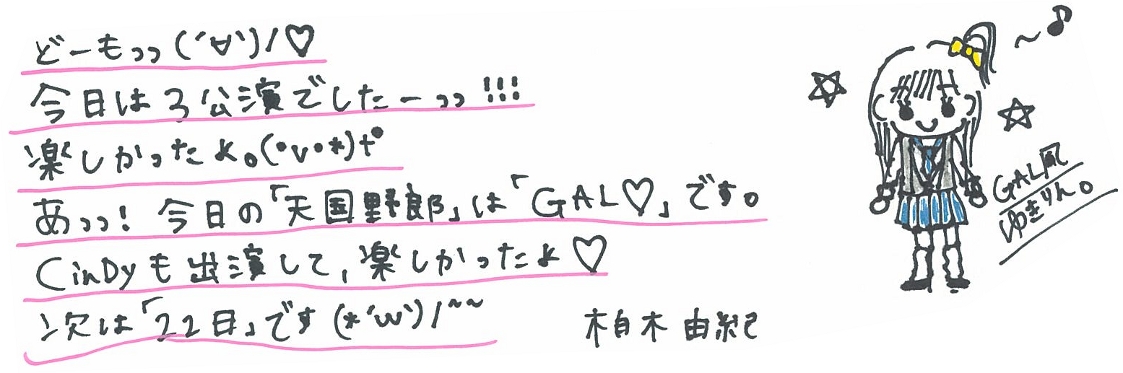 どーもっっ(´∀`)/♡
今日は3公演でしたーっっ!!!
楽しかったよ。(・v・*)†
あっっ!今日の「天国野郎」は「GAL♡」です。
CinDyも出演して、楽しかったよ♡
次は「22日」です(*´ω`)/~~
柏木由紀
~♪
GAL風
ゆきりん。